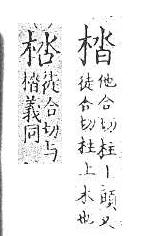 他合切柱上頭又
徒合切柱上木也
徒合切与
義同